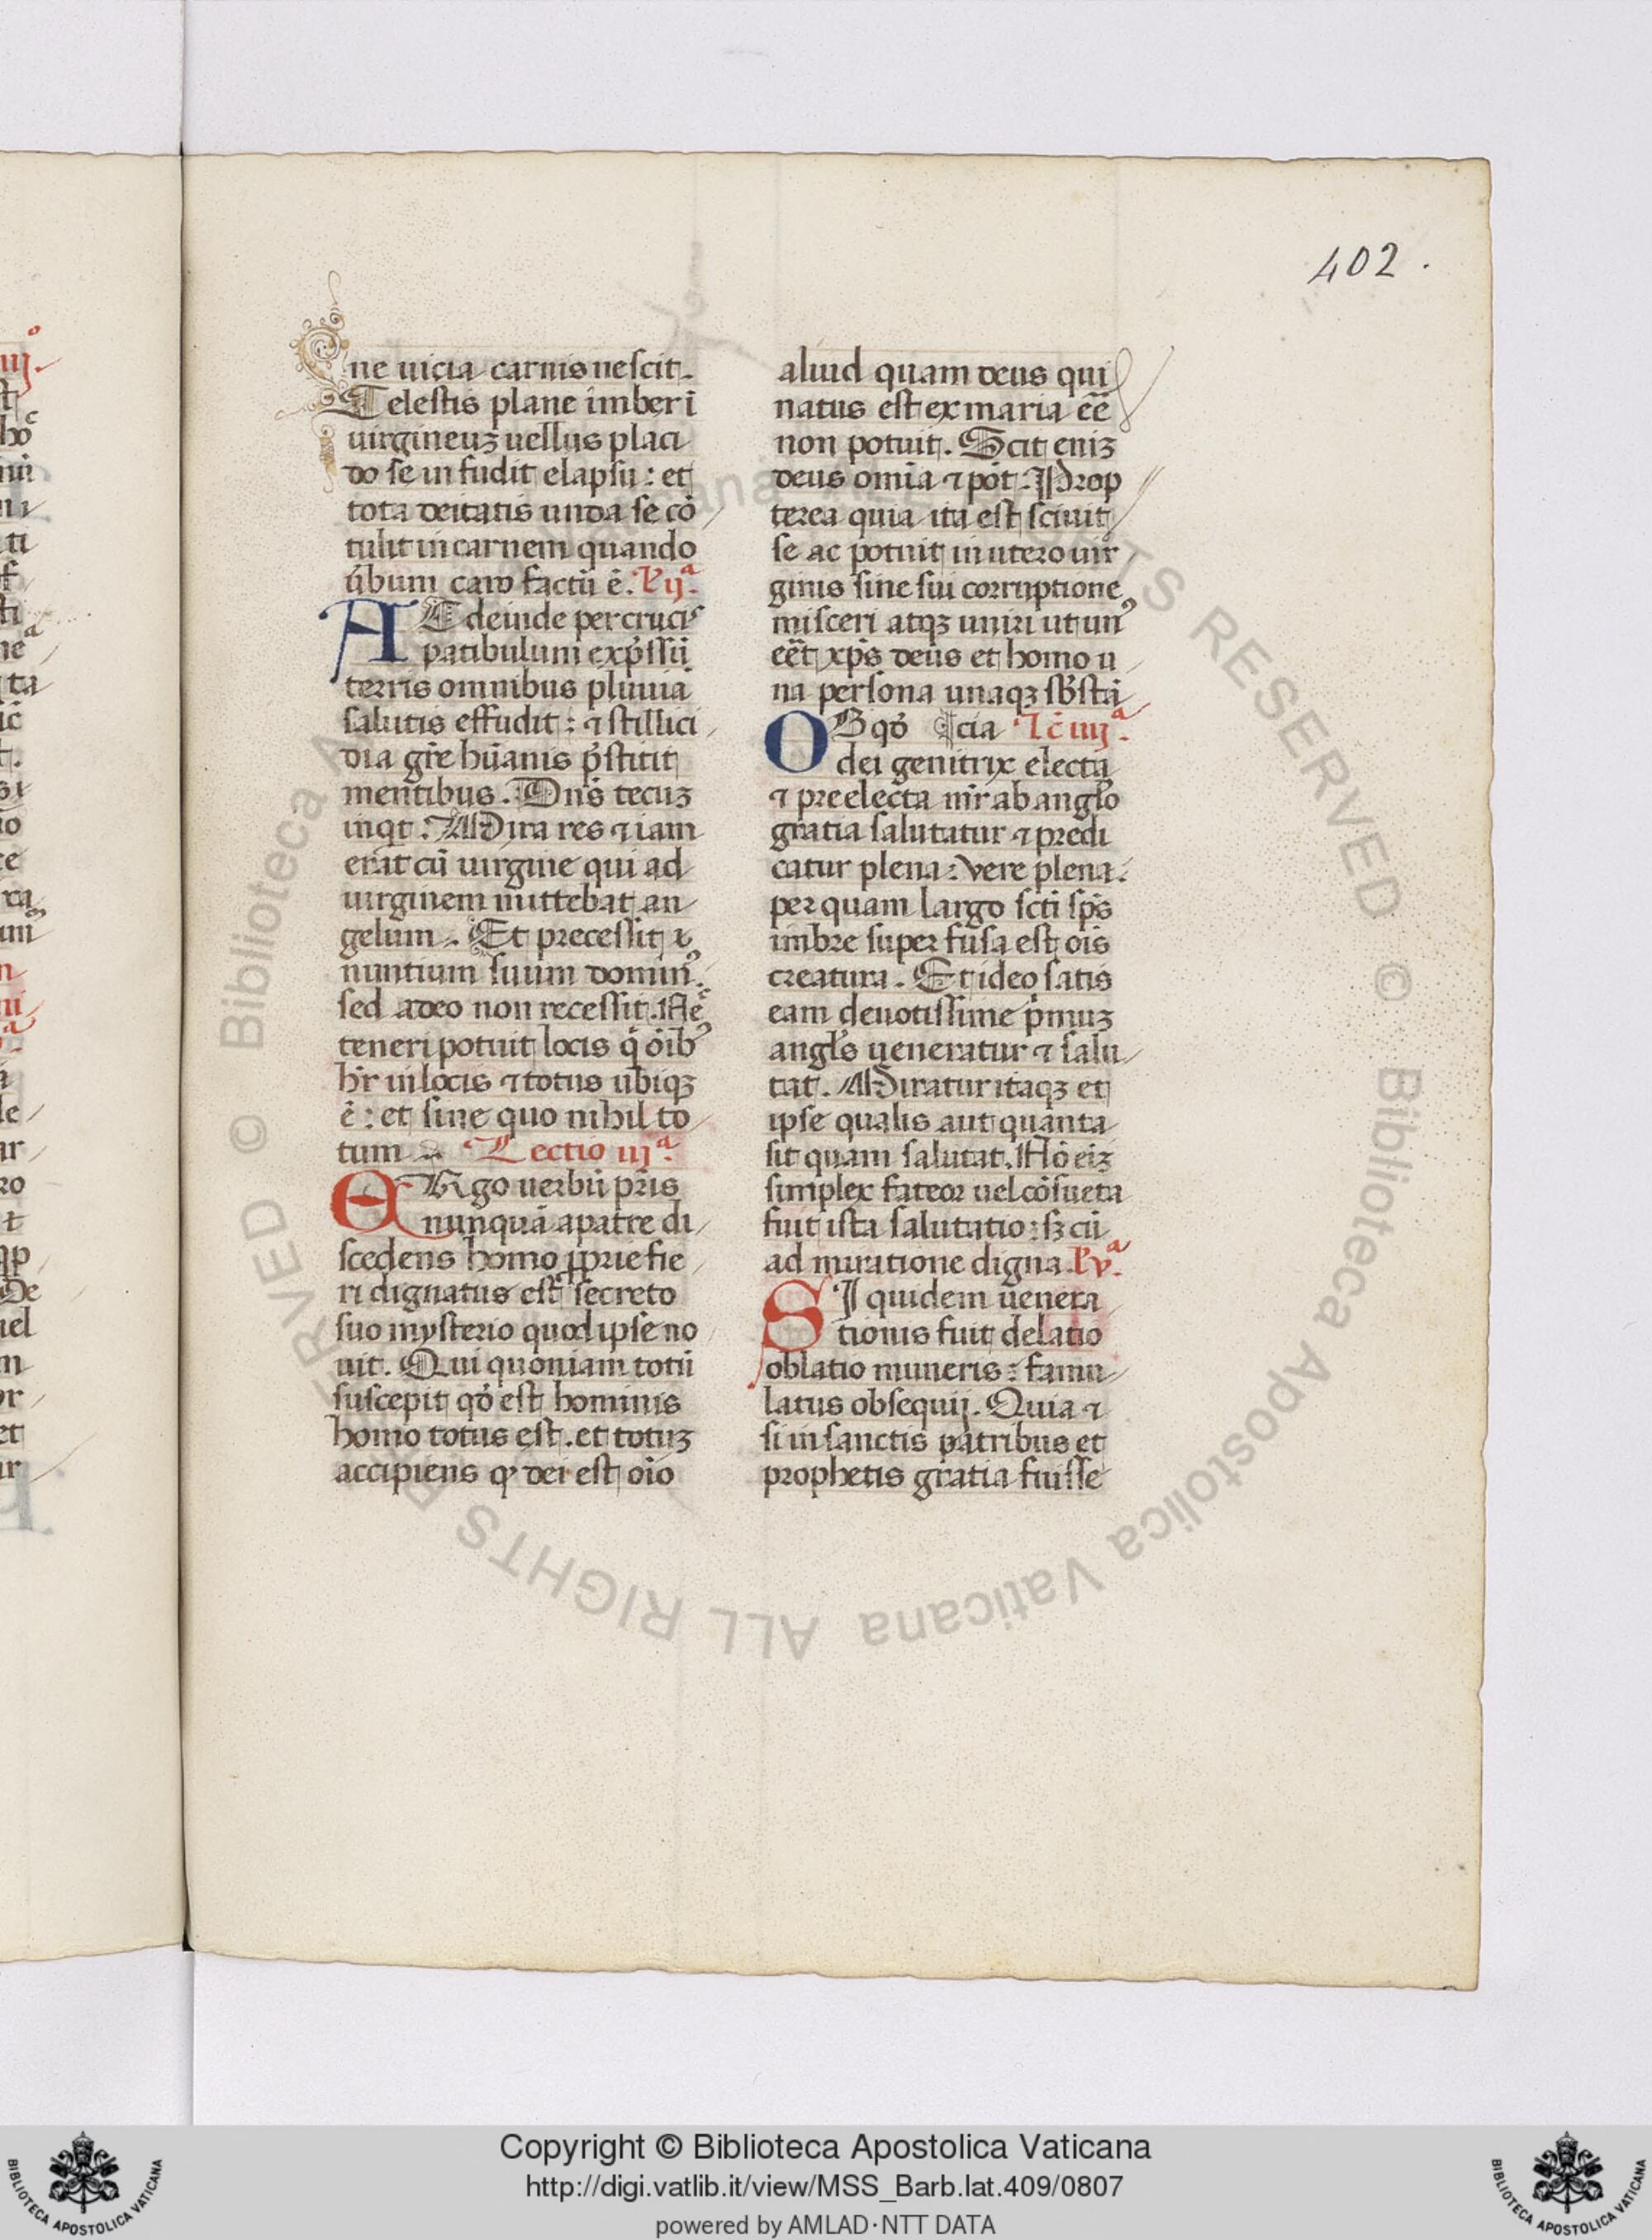 402.
ne uicia carnis nescit.
Celestis plane imber ī
uirgineuꝫ uellus placi
do se infudit elapsu: et
tota deitatis unda se cō
tulit in carnem quando
ūbum caro factū ē. L' ijª.
AC deinde per crucis
patibulum exp̄ssū
terris omnibus pluuiā
salutis effudit: ⁊ stillici
dia gr̄e hūanis p̄stitit
mentibus. Dn̄s tecuꝫ
inqt. Mira res ⁊ iam
erat cū uirgine qui ad
uirginem mittebat an
gelum. Et precessit
nuntium suum domin᷒.
sed a deo non recessit. Nec
teneri potuit locis q̇ oīb᷒
hr̄ in locis ⁊ totus ubiqꝫ
ē: et sine quo nihil to
tum. Lectio iijª.
ERgo uerbū pr̄is
nunquā a patre di
scedens homo ꝓprie fie
ri dignatus est secreto
suo mysterio quod ipse no
uit. Qui quoniam totū
suscepit qd̓ est hominis
homo totus est. et totuꝫ
accipiens qᷣ dei est oīo
aliud quam deus qui
natus est ex maria eē
non potuit. Scit eniꝫ
deus omīa ⁊ pōt. Prop
terea quia ita est sciuit
se ac potuit in utero uir
ginis sine sui corruptione
misceri atqꝫ uniri ut un᷒
eēt xp̄s deus et homo u
na persona unaqꝫ sb̄stā
OB qd̓ cia Lc̄ iiijª.
dei genitrix electa
⁊ preelecta mr̄ ab angl̄o
gratia salutatur ⁊ predi
catur plena: vere plena.
per quam largo sc̄ti sp̄s
imbre superfusa est oīs
creatura. Et ideo satis
eam deuotissime p̄muꝫ
angl̄s ueneratur ⁊ salu
tat. Miratur itaqꝫ et
ipse qualis aut quanta
sit quam salutat. Nō eiꝫ
simplex fateor uel cōsueta
fuit ista salutatio: sꝫ cū
ad miratione digna. L' vª.
SI quidem uenera
tionis fuit delatio
oblatio muneris: famu
latus obsequij. Quia ⁊
si in sanctis patribus et
prophetis gratia fuisse
Copyright © Biblioteca Apostolica Vaticana
http://digi.vatlib.it/view/MSS_Barb.lat.409/0807
powered by AMLAD·NTT DATA
BIBLIOTECA APOSTOLICA VATICANA
BIBLIOTECA APOSTOLICA VATICANA
© Biblioteca Apostolica Vaticana ALL RIGHTS RESERVED